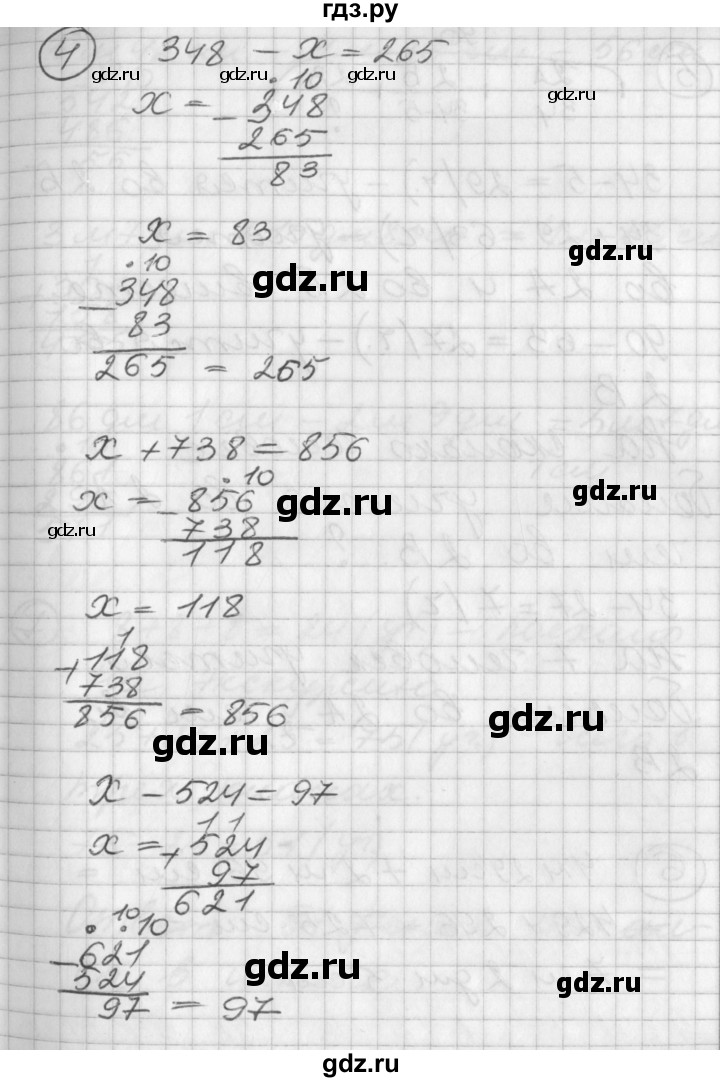 гдз.ру
4 348 - x = 265
gdz.ru gdz.ru gdz.ru gdz.ru
• 10
x = - 348
265
83
x = 83
gdz.ru
• 10
gdz.ru
- 348
83
265 = 265
x + 738 = 856
• 10
gdz.ru
x = - 856
gdz.ru
gdz.ru
738
118
x = 118
1
+ 118
738
856 = 856
gdz.ru
gdz.ru
x - 524 = 97
1 1
x = + 524
97
621
• 10 • 10
- 621
gdz.ru
524
gdz.ru
97 = 97
gdz.ru